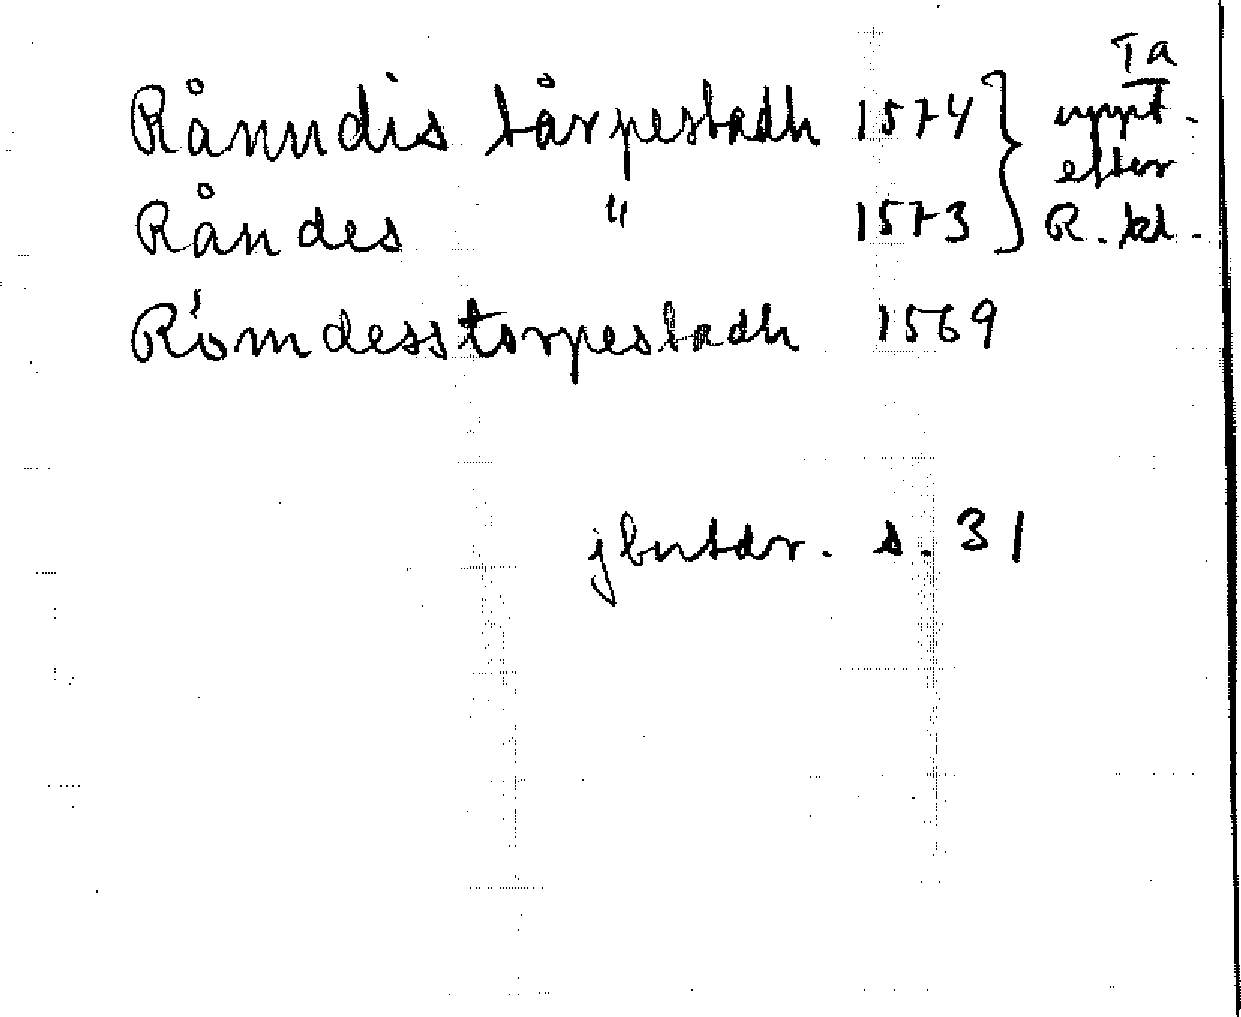 Rånndis tårpestadh 1574 } Ta uppt. efter R. kl.
Råndes " 1573
Römdesstorpestadh 1569
jbutdr. s. 31